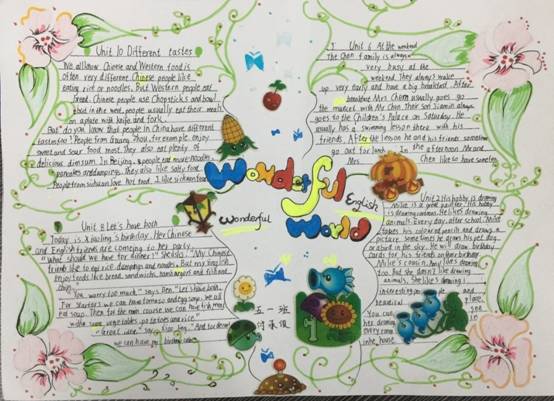 Unit 10 Different tastes
We all know Chinese and Western food is
often very different. Chinese people like
eating rice or noodles, But Western people eat
bread. Chinese people use Chopsticks and bowl
food in the west, people usually eat their meals
on a plate with knife and fork.
But do you know that people in China have different
tastes too? People from
for example, enjoy
sweet and sour food most. They also eat plenty of
delicious dim sum. In Beijing, people eat more noodles,
pancakes and dumplings. They also like salty food.
People from Sichuan love hot food. I like
Unit 8 Let's have both
Today is Xiaoling's birthday. Her Chinese
and English friends are coming to her party.
"What should we have for dinner?" she asks. "My Chinese
friends like to eat rice dumplings and noodles. But my English
friends like bread sandwich, hamburgers and fish and
chips."
"You worry too much," says Ben. "Let's have both.
For starters we can have tomato and egg soup. We all
eat soup. Then for the main course we can have
with vegetables, potatoes and rice."
"Great idea", says
"And for dessert
we can have
Wonderful
English
World
Wonderful
五一班
Unit 6 At the weekend
The Chen family is always
very busy at the
weekend. They always wake
up very early and have a big breakfast. After
breakfast Mrs Chen usually goes to
the market with Mr Chen. Their son Jiamin always
goes to the Children's Palace on Saturday. He
usually has a swimming lesson there with his
friends. After the lesson he and his friends sometimes
go out for lunch. In the afternoon Mr and
Mrs Chen like to have some tea
Unit 2 His hobby is drawing
Mike is a great painter. His hobby
is drawing animals. He likes drawing
animals. Every day, after school, Mike
takes his coloured pencils and draws a
picture. Sometimes he draws his pet dog
or a bird in the sky. He will draw birthday
cards for his friends on their birthday.
Mike's cousin Amy likes drawing
too. But she doesn't like drawing
animals. She likes drawing
interesting people and
beautiful places.
You can see
her drawings
everywhere
in the house.